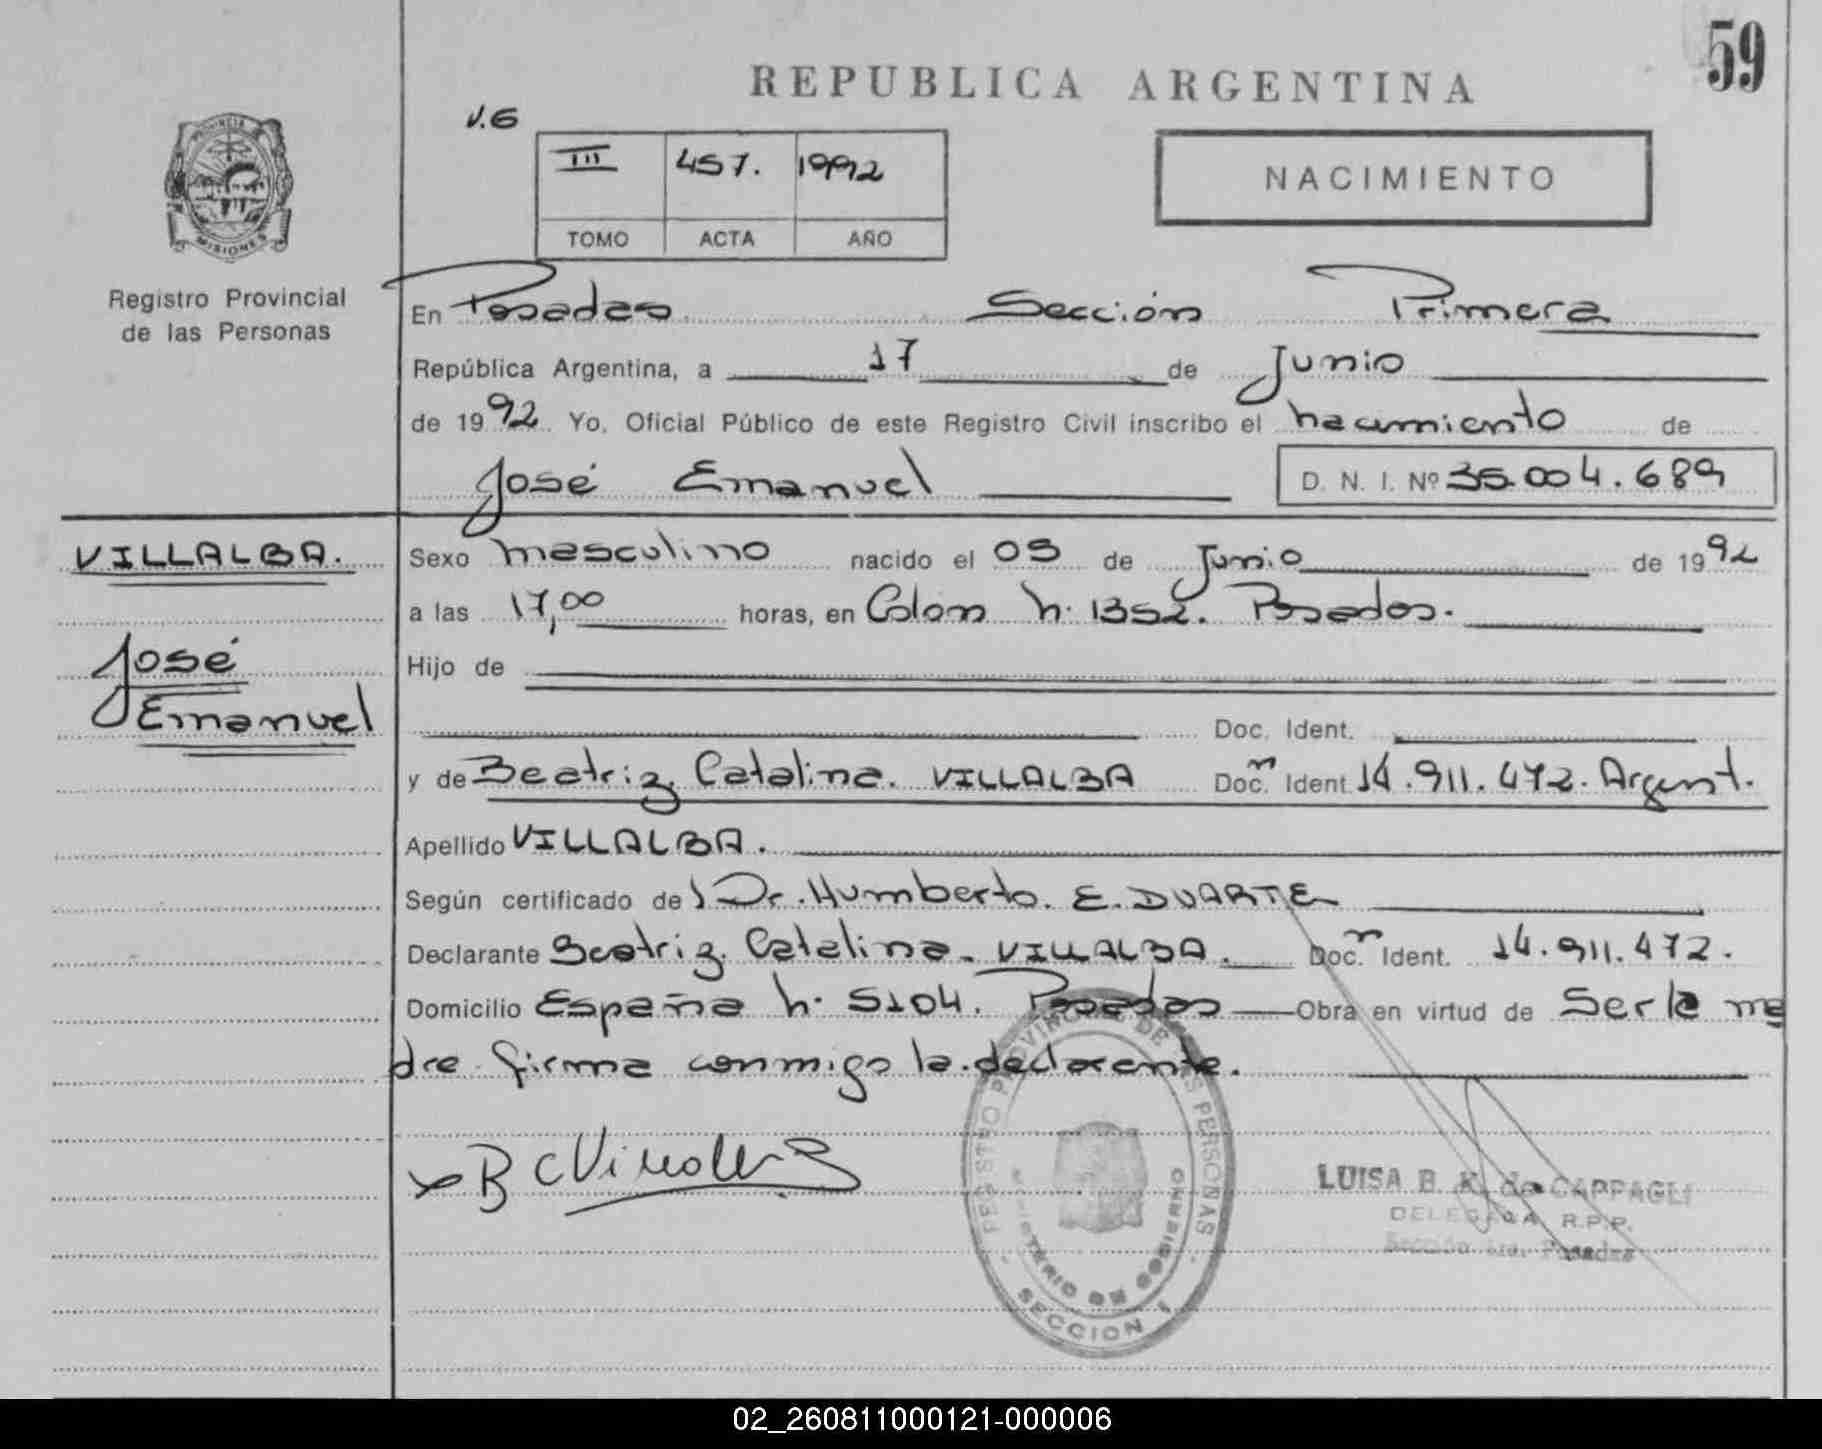 59
REPUBLICA ARGENTINA
V.6
III 457. 1992
TOMO ACTA AÑO
NACIMIENTO
PROVINCIA DE
MISIONES
Registro Provincial
de las Personas
En Posadas Sección Primera
República Argentina, a 17 de Junio
de 1992 Yo, Oficial Público de este Registro Civil inscribo el nacimiento de
José Emanuel D. N. I. Nº 35.004.689
VILLALBA.
José
Emanuel
Sexo masculino nacido el 05 de Junio de 1992
a las 17,00 horas, en Colon n. 1352. Posadas.
Hijo de
Doc. Ident.
y de Beatriz Catalina. VILLALBA Doc. Ident. 14.911.472. Argent.
Apellido VILLALBA.
Según certificado del Dr. Humberto. E. DUARTE
Declarante Beatriz Catalina. VILLALBA. Doc. Ident. 14.911.472.
Domicilio España n. 5104. Posadas Obra en virtud de Ser la ma
dre. firma conmigo la declarante.
REGISTRO PROVINCIAL DE LAS PERSONAS
MINISTERIO DE GOBIERNO
SECCION I
LUISA B. K. de CAPPAGLI
DELEGADA R.P.P.
Sección 1ra. Posadas
02_260811000121-000006